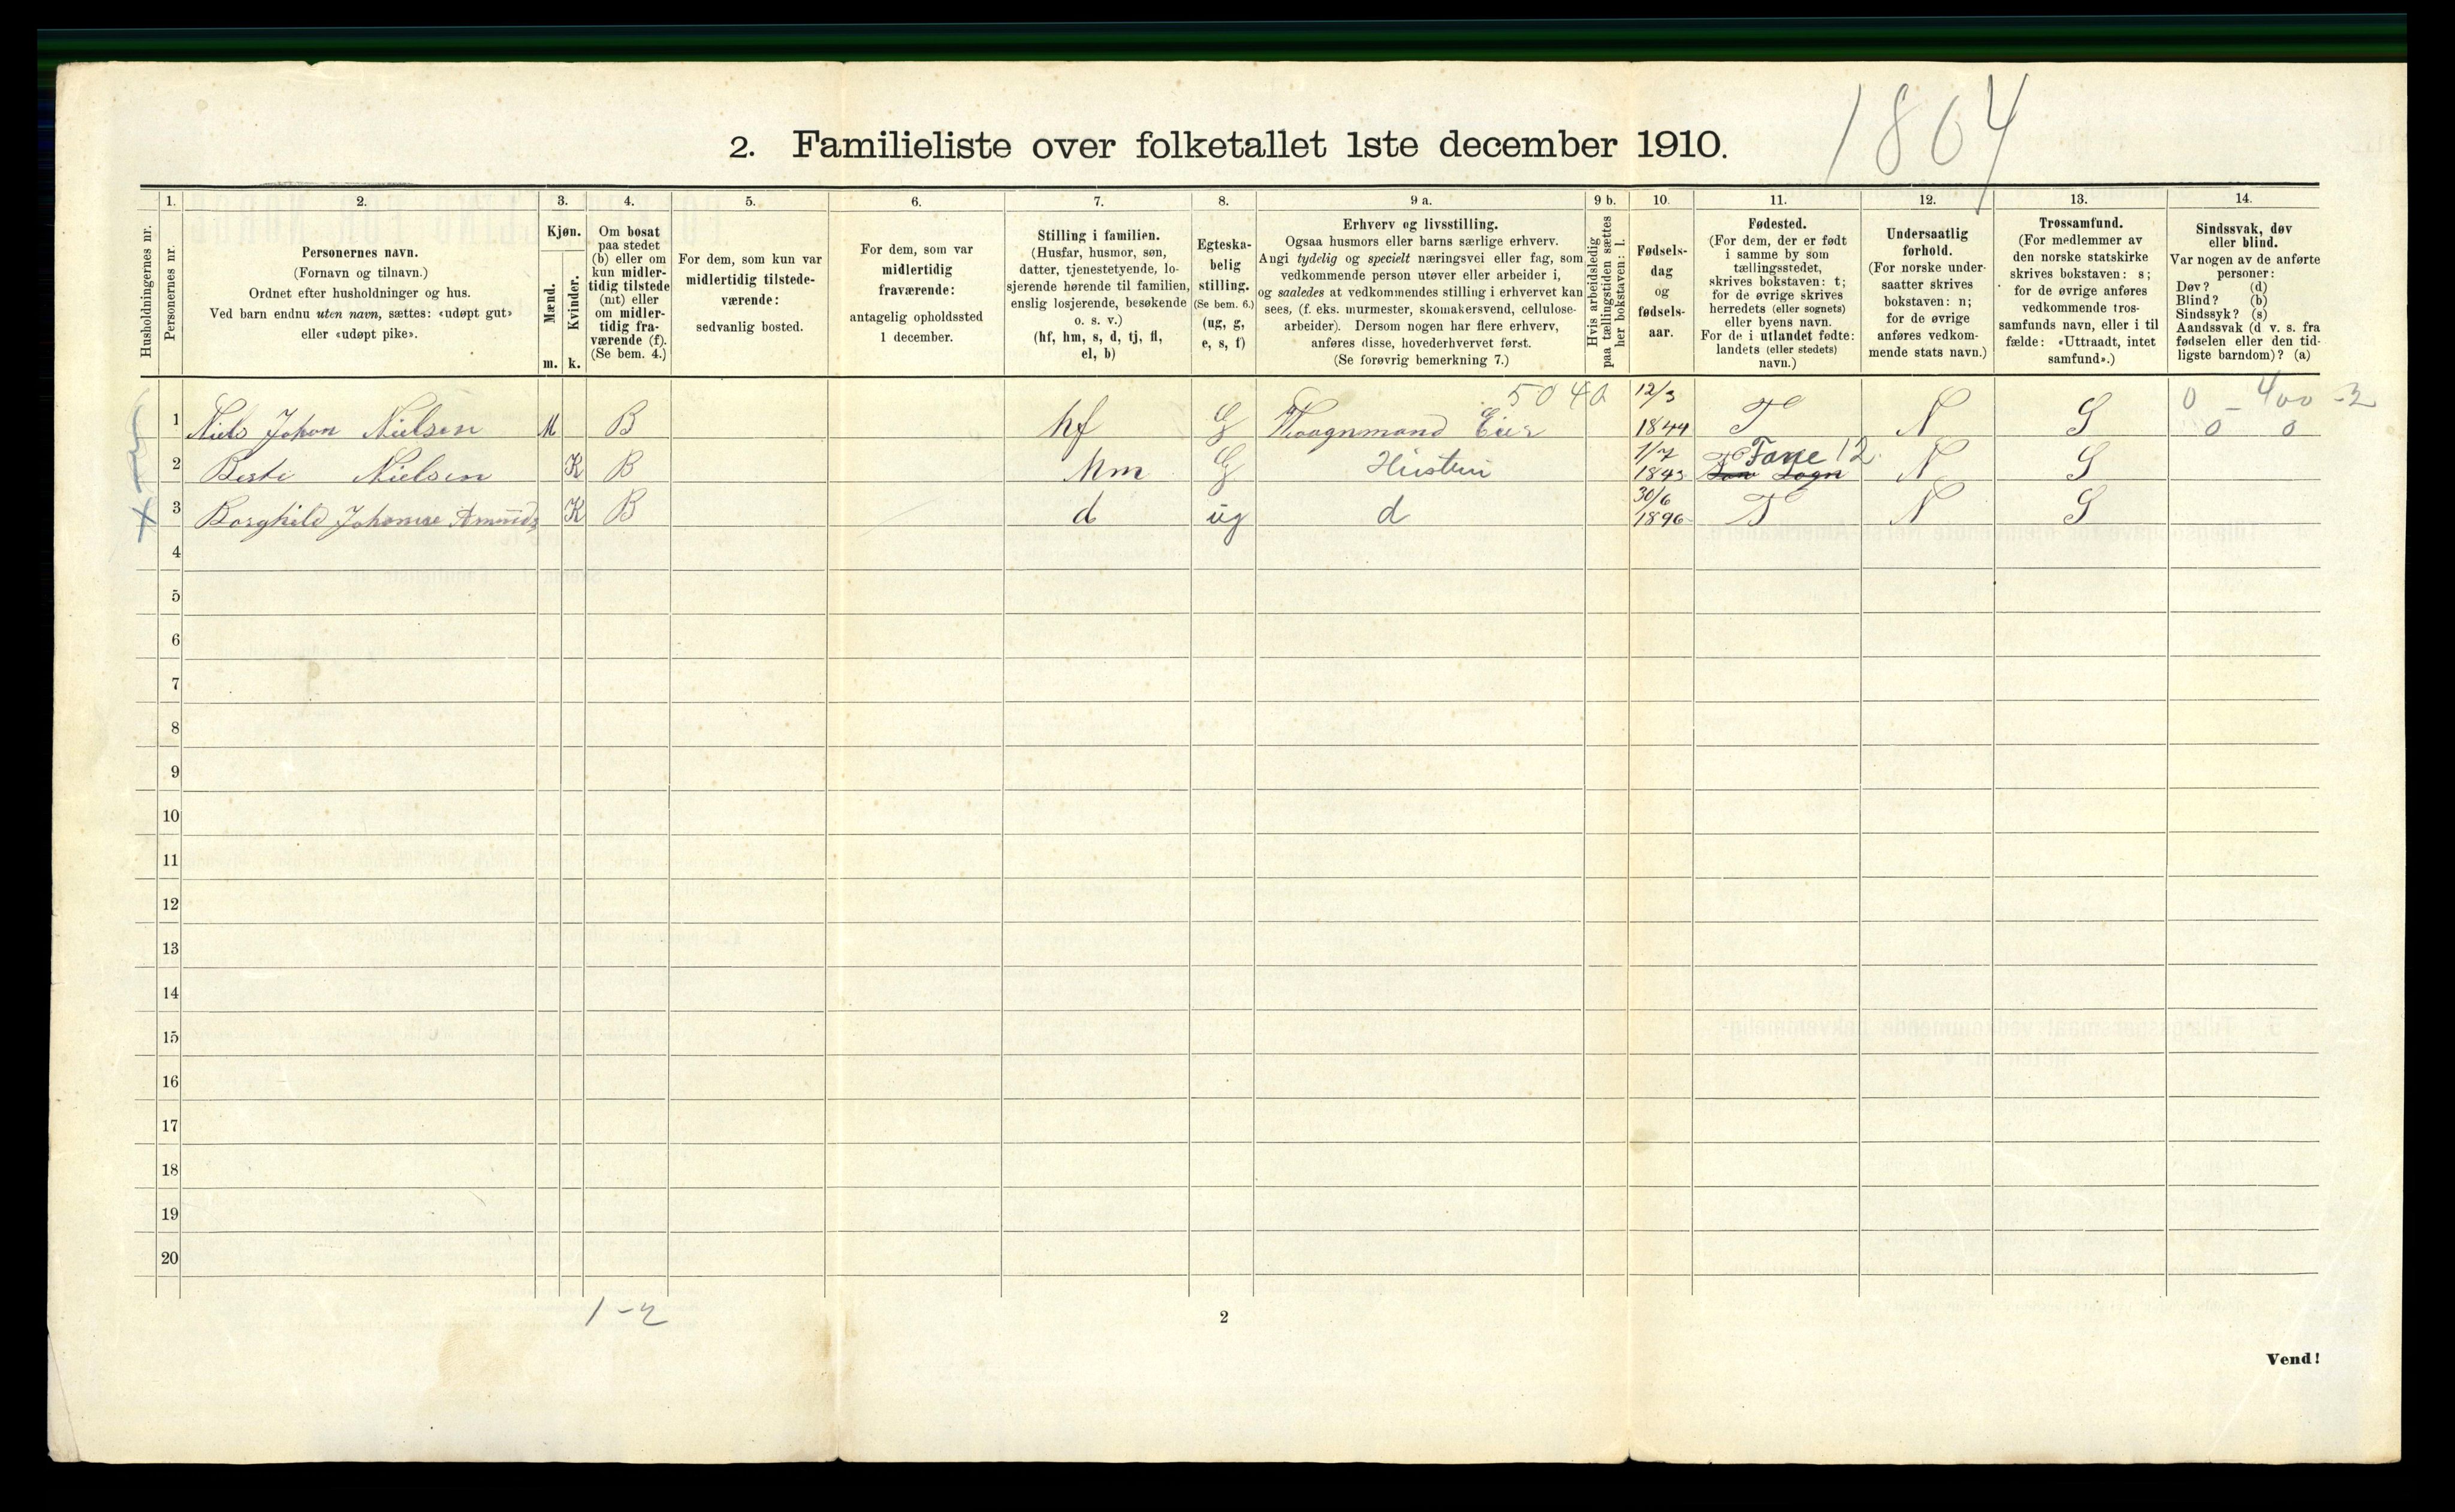 1864
2. Familieliste over folketallet 1ste december 1910.
1. 2. 3. 4. 5. 6. 7. 8. 9 a. 9 b. 10. 11. 12. 13. 14.
Husholdningernes nr.
Personernes nr.
Personernes navn.
(Fornavn og tilnavn.)
Ordnet efter husholdninger og hus.
Ved barn endnu uten navn, sættes: «udøpt gut»
eller «udøpt pike».
Kjøn.
Mænd.
m.
Kvinder.
k.
Om bosat
paa stedet
(b) eller om
kun midler-
tidig tilstede
(mt) eller
om midler-
tidig fra-
værende (f).
(Se bem. 4.)
For dem, som kun var
midlertidig tilstede-
værende:
sedvanlig bosted.
For dem, som var
midlertidig
fraværende:
antagelig opholdssted
1 december.
Stilling i familien.
(Husfar, husmor, søn,
datter, tjenestetyende, lo-
sjerende hørende til familien,
enslig losjerende, besøkende
o. s. v.)
(hf, hm, s, d, tj, fl,
el, b)
Egteska-
belig
stilling.
(Se bem. 6.)
(ug, g,
e, s, f)
Erhverv og livsstilling.
Ogsaa husmors eller barns særlige erhverv.
Angi tydelig og specielt næringsvei eller fag, som
vedkommende person utøver eller arbeider i,
og saaledes at vedkommendes stilling i erhvervet kan
sees, (f. eks. murmester, skomakersvend, cellulose-
arbeider). Dersom nogen har flere erhverv,
anføres disse, hovederhvervet først.
(Se forøvrig bemerkning 7.)
Hvis arbeidsledig
paa tællingstiden sættes
her bokstaven: l.
Fødsels-
dag
og
fødsels-
aar.
Fødested.
(For dem, der er født
i samme by som
tællingsstedet,
skrives bokstaven: t;
for de øvrige skrives
herredets (eller sognets)
eller byens navn.
For de i utlandet fødte:
landets (eller stedets)
navn.)
Undersaatlig
forhold.
(For norske under-
saatter skrives
bokstaven: n;
for de øvrige
anføres vedkom-
mende stats navn.)
Trossamfund.
(For medlemmer av
den norske statskirke
skrives bokstaven: s;
for de øvrige anføres
vedkommende tros-
samfunds navn, eller i til
fælde: «Uttraadt, intet
samfund».)
Sindssvak, døv
eller blind.
Var nogen av de anførte
personer:
Døv? (d)
Blind? (b)
Sindssyk? (s)
Aandssvak (d v. s. fra
fødselen eller den tid-
ligste barndom)? (a)
5040 12/3 0 - 400 -2
1 Niels Johan Nielsen M B hf G Eier 1844 T N S 0 0
2 Nielsen K B Hm G Hustru 1/7 1843 Fane 12 Sogn N S
3 Borghild K B d ug d 30/6 1896 T N S
4
5
6
7
8
9
10
11
12
13
14
15
16
17
18
19
20
1-2
2
Vend!